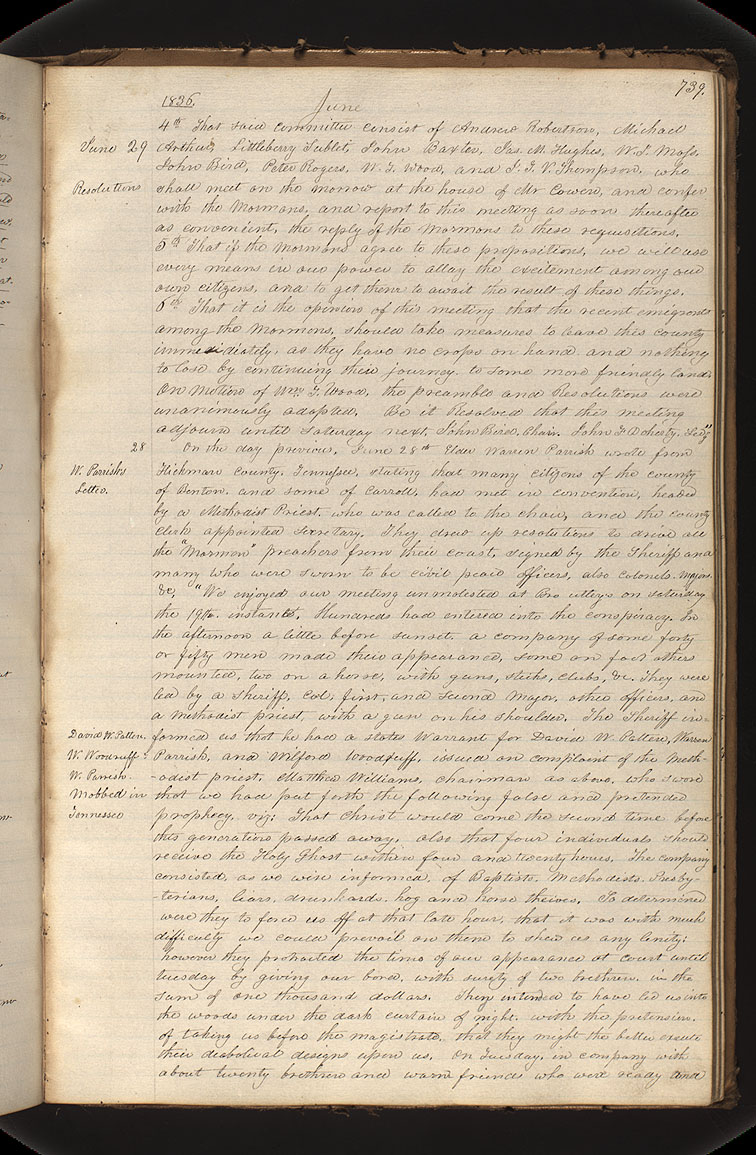 739.
1836. June
4th That said committee consist of Andrew Robertson, Michael
June 29 Arthur, Littleberry Sublet, John Baxter, Jas. M. Hughes, W. J. Moss,
John Bird, Peter Rogers, W. T. Wood, and J. T. V. Thompson, who
Resolutions shall meet on the morrow at the house of Mr Cowen, and confer
with the Mormons, and report to this meeting as soon thereafter
as convenient, the reply of the Mormons to these requisitions.
5th That if the Mormons agree to these propositions, we will use
every means in our power to allay the excitement among our
own citizens, and to get them to await the result of these things.
6th That it is the opinion of this meeting that the recent emigrants
among the Mormons, should take measures to leave this county
immediately, as they have no crops on hand and nothing
to lose by continuing their journey to some more friendly land.
On Motion of Wm T. Wood, the preamble and Resolutions were
unanimously adopted. Be it Resolved that this meeting
adjourn until Saturday next. John Bird, Chair. John F. Doherty, Secy"
28 On the day previous, June 28th Elder Warren Parrish wrote from
W. Parrish's Hickman County, Tennessee, stating that many citizens of the county
Letter. of Benton, and some of Carroll, had met in convention, headed
by a Methodist Priest, who was called to the chair, and the county
clerk appointed secretary. They drew up resolutions to drive all
the "Mormon" preachers from their coast, signed by the Sheriff and
many who were sworn to be civil peace officers, also colonels, majors
&c, "We enjoyed our meeting unmolested at Bro utley's on saturday
the 19th. instant. Hundreds had entered into the conspiracy. In
the afternoon a little before sunset, a company of some forty
or fifty men made their appearance, some on foot others
mounted, two on a horse, with guns, sticks, clubs, &c. They were
led by a Sheriff, Col, first, and second Major, other officers, and
a Methodist priest, with a gun on his shoulder. The Sheriff in=
David W. Patten, formed us that he had a states Warrant for David W. Patten, Warren
W. Woodruff Parrish, and Wilford Woodruff, issued on complaint of the Meth-
W. Parrish -odist priest, Matthew Williams, chairman as above, who swore
Mobbed in that we had put forth the following false and pretended
Tennessee prophecy, viz; That Christ would come the second time before
this generation passed away, also that four individuals should
receive the Holy Ghost within four and twenty hours. The company
consisted, as we wire informed, of Baptists, Methodists, Presby-
-terians, liars, drunkards, hog and horse theives. So determined
were they to force us off at that late hour, that it was with much
difficulty we could prevail on them to shew us any lenity;
however they protracted the time of our appearance at court until
tuesday by giving our bond, with surety of two brethren, in the
sum of one thousand dollars. They intended to have led us into
the woods under the dark curtain of night, with the pretension,
of taking us before the magistrate, that they might the better execute
their diabolical designs upon us. On Tuesday, in company with
about twenty brethren and warm friends who were ready and